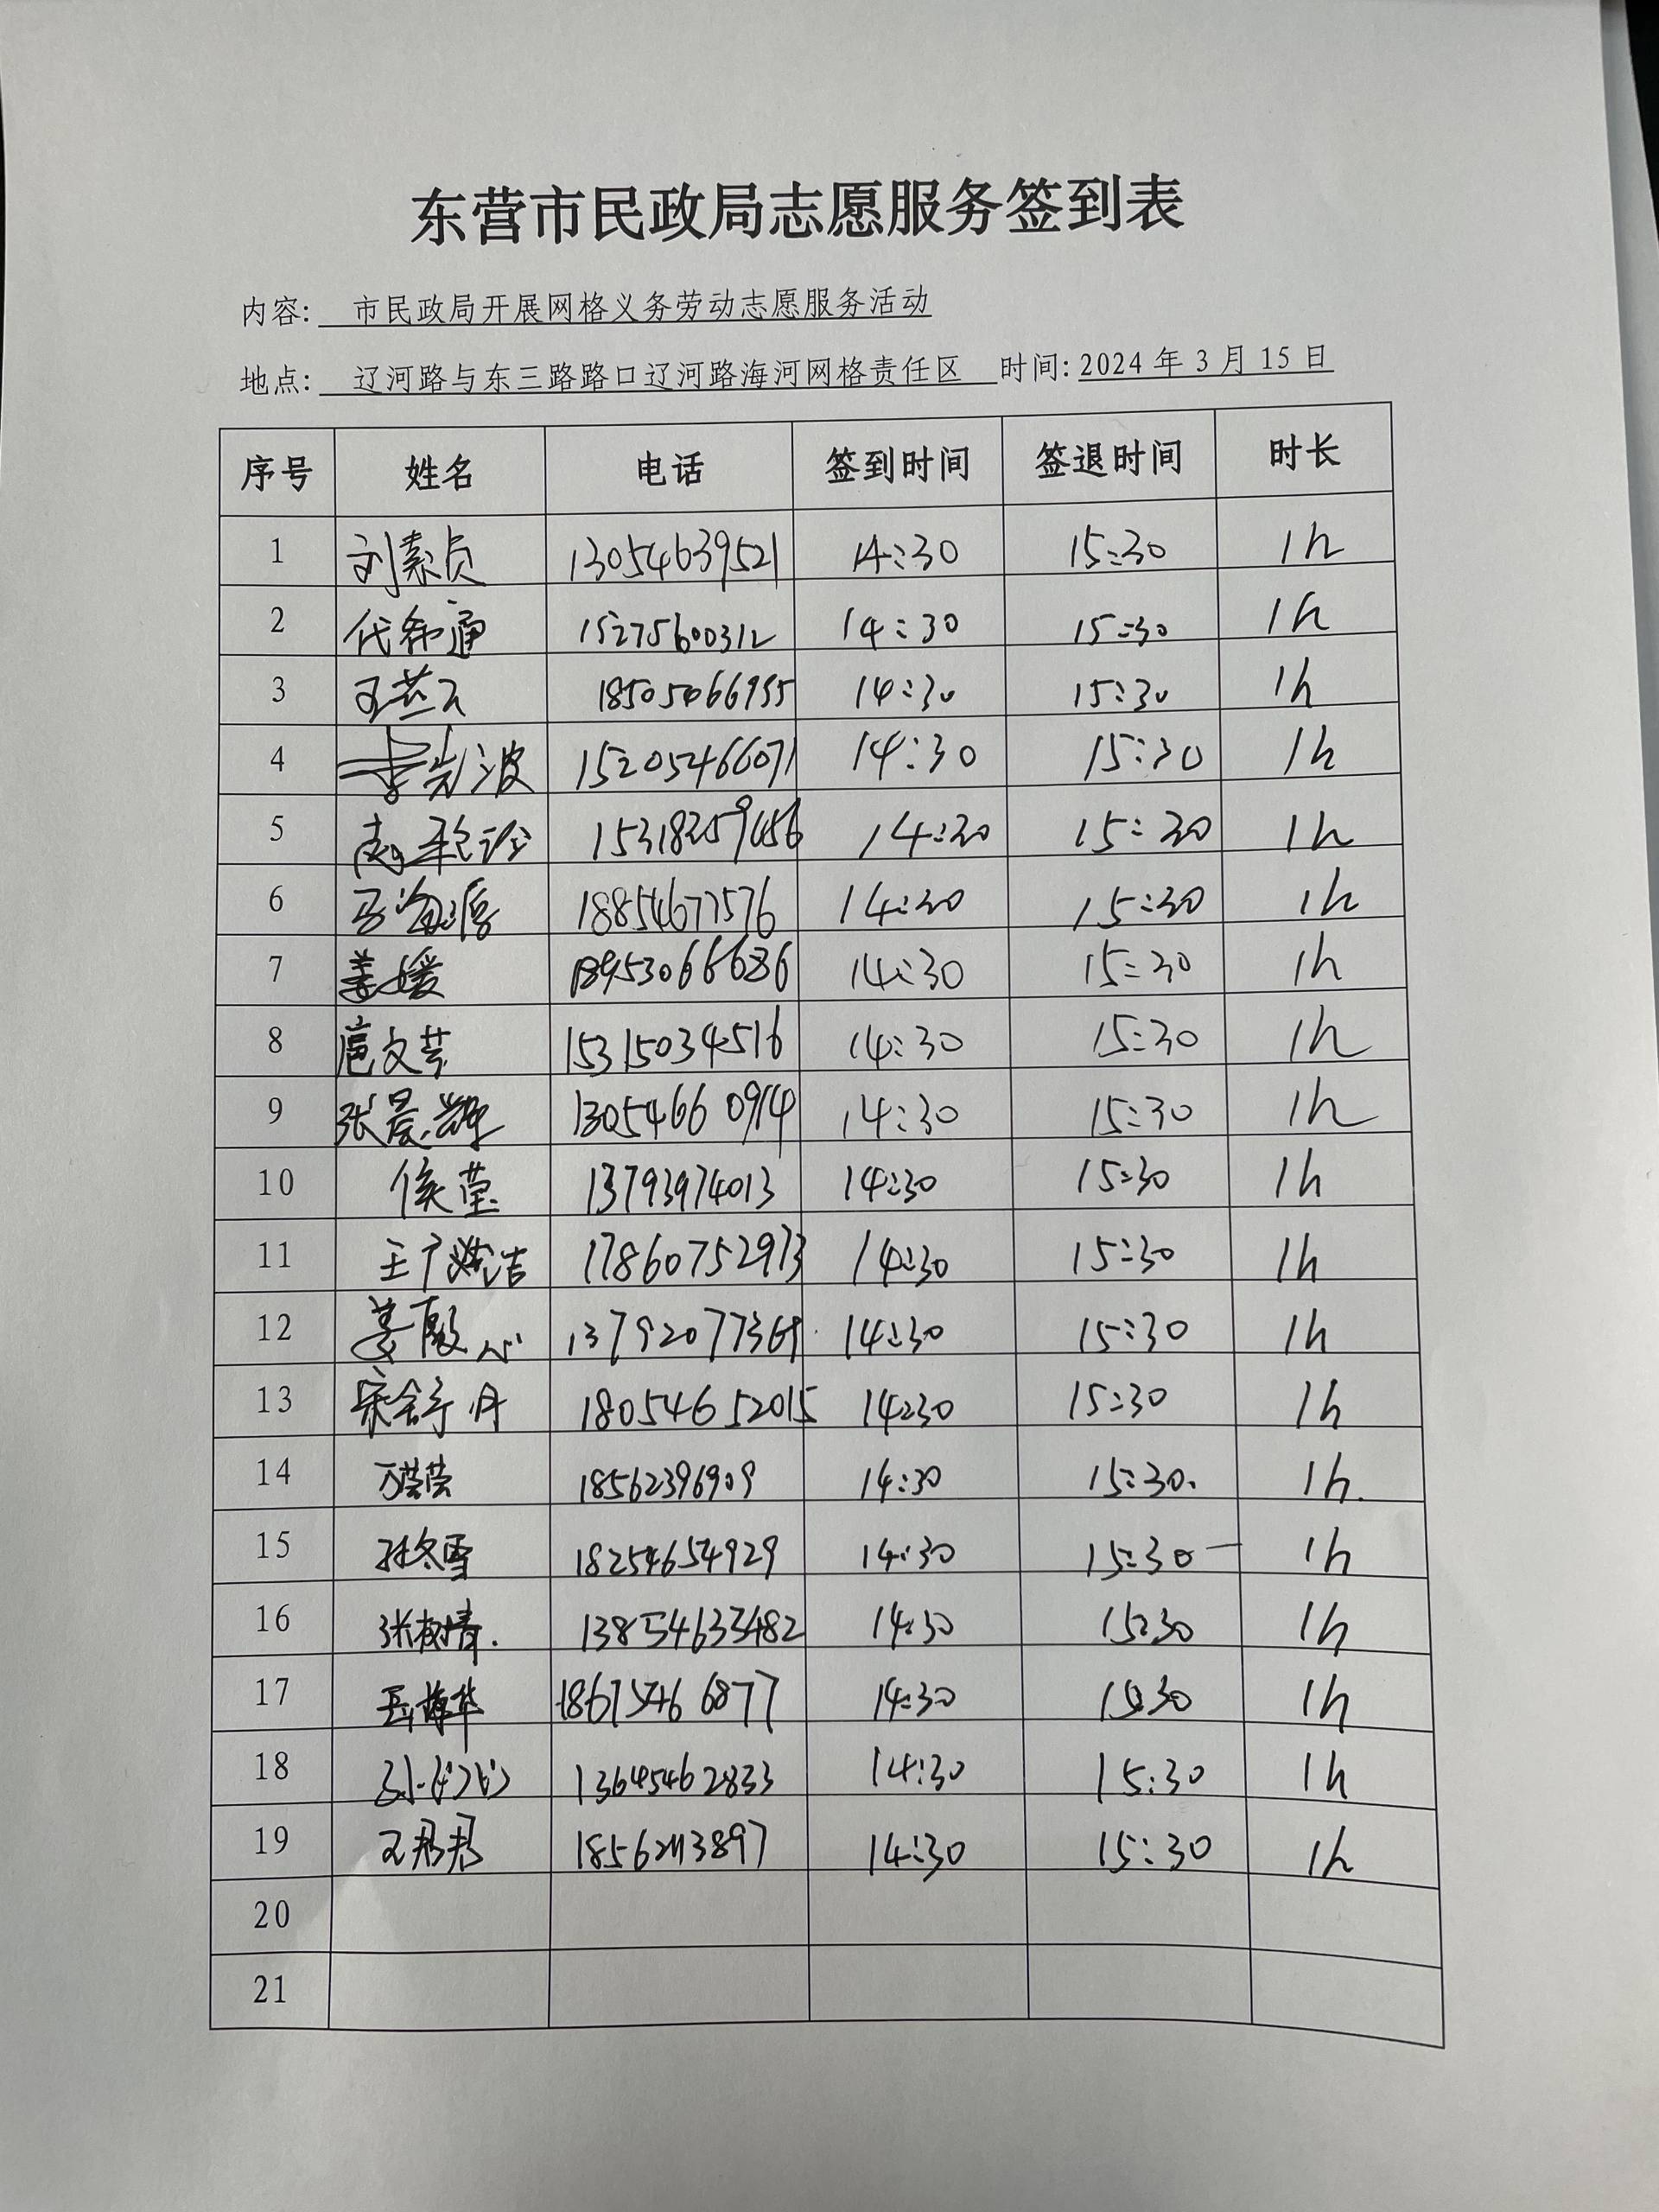 东营市民政局志愿服务签到表
内容: 市民政局开展网格义务劳动志愿服务活动
地点: 辽河路与东三路路口辽河路海河网格责任区 时间: 2024 年 3 月 15 日
序号 姓名 电话 签到时间 签退时间 时长
1 刘素贞 13054639521 14:30 15:30 1h
2 代希通 15275600312 14:30 15:30 1h
3 王燕云 14:30 15:30 1h
4 李岩波 15205466071 14:30 15:30 1h
5 14:30 15:30 1h
6 马海滨 18854677576 14:30 15:30 1h
7 姜媛 18953066686 14:30 15:30 1h
8 扈文芸 15315034516 14:30 15:30 1h
9 张晨辉 13054660914 14:30 15:30 1h
10 侯莹 13793974013 14:30 15:30 1h
11 17860752973 14:30 15:30 1h
12 13792077369 14:30 15:30 1h
13 宋舒丹 18054652015 14:30 15:30 1h
14 万芸芸 18562396909 14:30 15:30. 1h.
15 冬雪 18254654929 14:30 15:30 1h
16 张树青. 13854633482 14:30 15:30 1h
17 18675466877 14:30 15:30 1h
18 13645462833 14:30 15:30 1h
19 王君君 14:30 15:30 1h
20
21